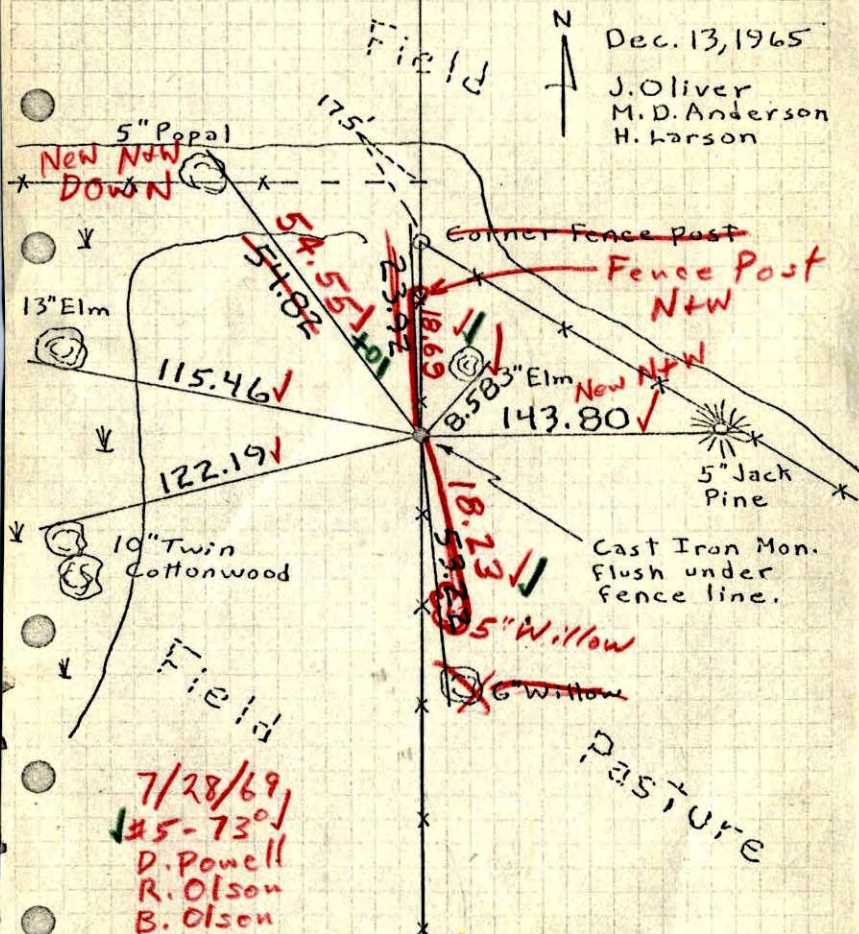 Field
N
Dec. 13, 1965
J. Oliver
M. D. Anderson
H. Larson
17.5'
5" Popal
New N+W
DOWN
Corner Fence Post
Fence Post
N+W
54.55
54.82
10+
23.92
18.69
13" Elm
115.46
3" Elm
8.58
New N+W
143.80
5" Jack
Pine
122.19
10" Twin
Cottonwood
18.23
53.22
Cast Iron Mon.
flush under
fence line.
5" Willow
6" Willow
Field
Pasture
7/28/69
#5-73°
D. Powell
R. Olson
B. Olson